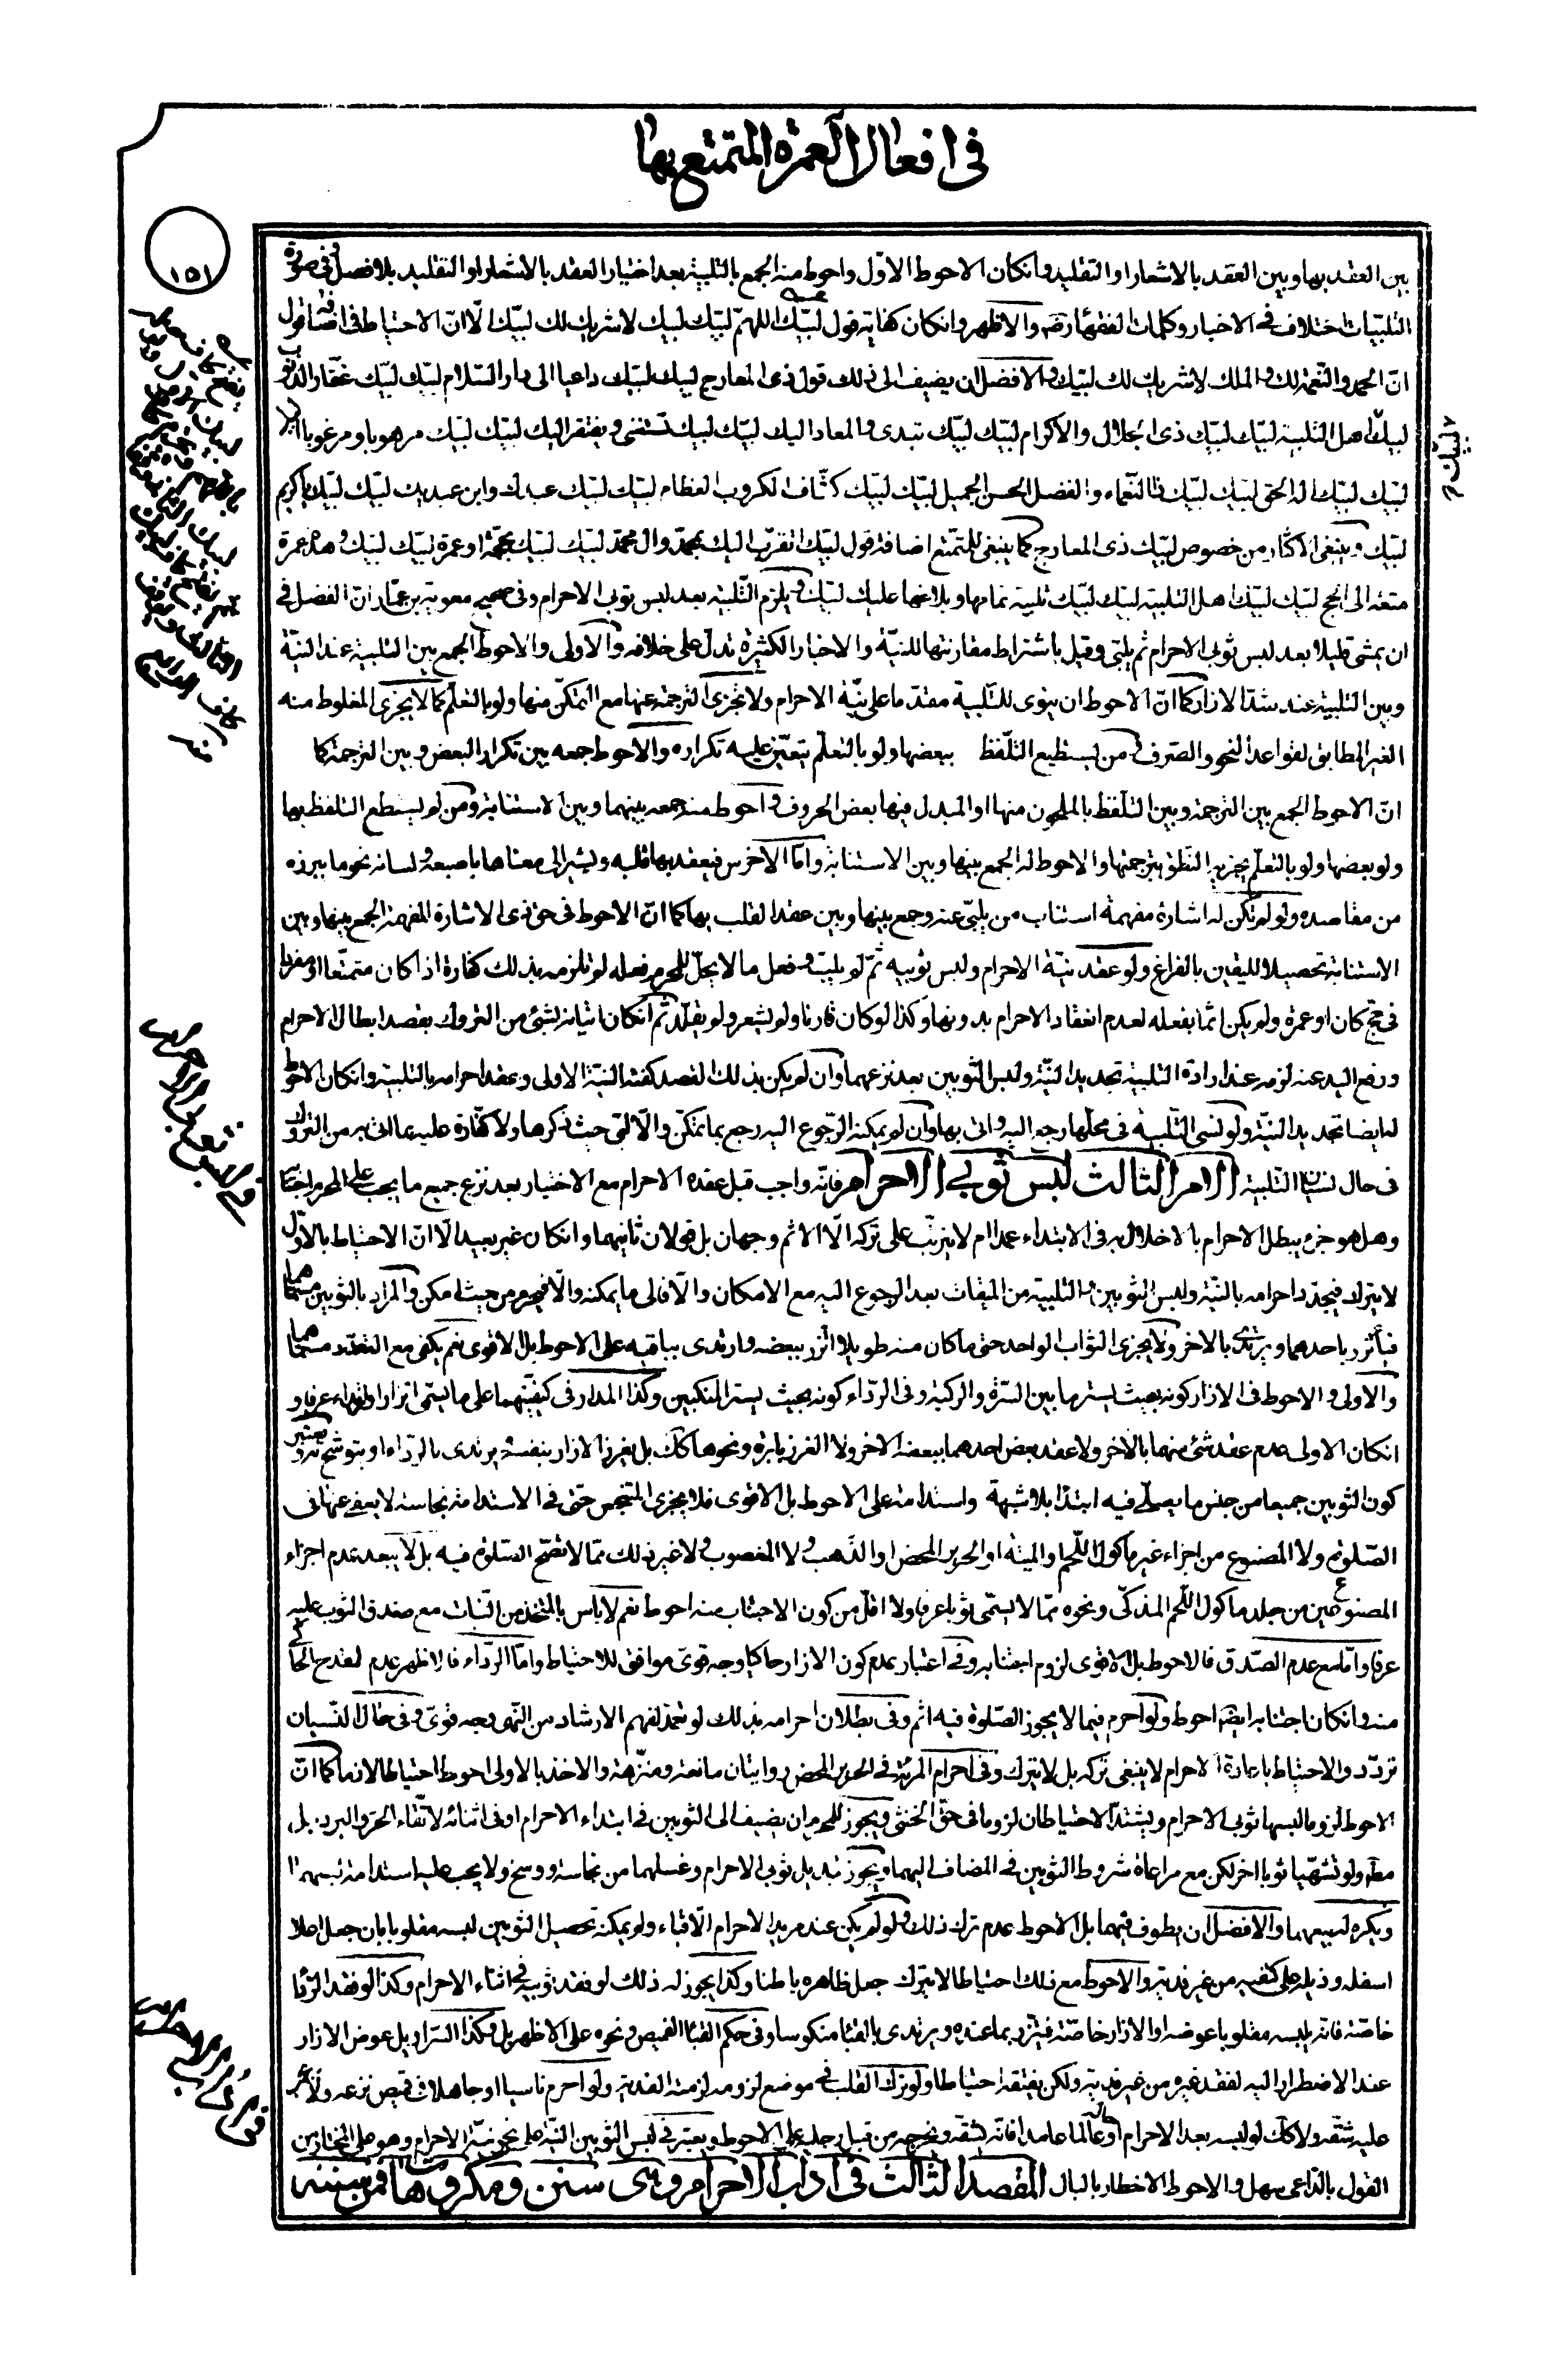 في افعال العمرة المتمتع بها
١٥١
بين العقد بها وبين العقد بالاشعار او التقليد وانكان الاحوط الاوّل واحوط منه الجمع بالتلبية بعد اختيار العقد بالاشعار او التقليد بلا فصل وفى صورة
التلبيات اختلاف فى الاخبار وكلمات الفقهاء رضه والاظهر وانكان كفاية قول لبّيك اللهمّ لبّيك لبّيك لا شريك لك لبّيك الّا انّ الاحتياط فى اضافة قول
انّ الحمد والنّعمة لك والملك لا شريك لك لبّيك والافضل ان يضيف الى ذلك قول ذى المعارج لبيك لبّيك داعيا الى دار السّلام لبّيك لبّيك غفّار الذنوب
لبيك اهل التلبية لبّيك لبّيك ذى الجلال والاكرام لبّيك لبّيك تبدى والمعاد اليك لبّيك لبيك تستغنى ويفتقر اليك لبّيك لبّيك مرهوبا ومرغوبا اليك
لبّيك لبّيك اله الحق لبّيك لبّيك ذا النّعماء والفضل الحسن الجميل لبّيك لبّيك كشّاف الكروب العظام لبّيك لبّيك عبدك وابن عبديك لبّيك لبّيك يا كريم
لبّيك وينبغى الاكثار من خصوص لبّيك ذى المعارج كما ينبغى للمتمتع اضافة قول لبّيك اتقرّب اليك بمحمّد وال محمّد لبّيك لبّيك بحجّة او عمرة لبّيك لبّيك وهذه عمرة
متعة الى الحج لبّيك لبّيك اهل التلبية لبّيك لبّيك تلبية تمامها وبلاغها عليك لبّيك ويلزم التّلبية بعد لبس ثوبى الاحرام وفى صحيح معوية بن عمّار انّ الفضل فى
ان يمشى قليلا بعد لبس ثوبى الاحرام ثم يلبّى وقيل باشتراط مقارنتها للنيّة والاخبار الكثيرة تدلّ على خلافه والاولى والاحوط الجمع بين التلبية عند النيّة
وبين التلبية عند شدّ الازار كما انّ الاحوط ان ينوى للتّلبية مقدّما على نيّة الاحرام ولا تجزى الترجمة عنها مع التمكّن منها ولو بالتعلّم كما لا يجزى المغلوط منه
الغير المطابق لقواعد النحو والصّرف ومن يستطيع التلفّظ ببعضها ولو بالتعلّم يتعيّن عليه تكراره والاحوط جمعه بين تكرار البعض وبين الترجمة كما
انّ الاحوط الجمع بين الترجمة وبين التلفّظ بالملحون منها او المبدل فيها بعض الحروف واحوط منه جمعه بينهما وبين الاستنابة ومن لم يستطع التلفظ بها
ولو بعضها ولو بالتعلّم يجزيه النّطق بترجمتها والاحوط له الجمع بينها وبين الاستنابة وامّا الاخرس فيعقد بها قلبه ويشير الى معناها باصبعه ولسانه نحو ما يبرزه
من مقاصده ولو لم تكن له اشارة مفهمة استناب من يلبّى عنه وجمع بينها وبين عقد القلب بها كما انّ الاحوط فى حق ذى الاشارة المفهمة الجمع بينها وبين
الاستنابة تحصيلا لليقين بالفراغ ولو عقد نيّة الاحرام ولبس ثوبيه ثمّ لم يلبّ وفعل ما لا يحلّ للمحرم فعله لم تلزمه بذلك كفارة اذا كان متمتّعا او مفردا
فى حج كان او عمرة ولم يكن اثما بفعله لعدم انعقاد الاحرام بدونها وكذا لو كان قارنا ولم يشعر ولم يقلّد ثم انكان اتيانه لشئ من التروك بقصد ابطال الاحرام
ورفع اليد عنه لزمه عند ارادة التلبية تجديد النيّة ولبس الثوبين بعد نزعهما وان لم يكن بذلك القصد كفته النيّة الاولى وعقد احرامه بالتلبية وانكان الاحوط
له ايضا تجديد النيّة ولو نسى التلبية فى محلّها رجع اليه واتى بها وان لم يمكنه الرّجوع اليه رجع بما تمكّن والّا لبّى حيث ذكرها ولا كفّارة عليه بما اتى به من التروك
فى حال نسيان التلبية الامر الثالث لبس ثوبى الاحرام فانّه واجب قبل عقده الاحرام مع الاختيار بعد نزع جميع ما يجب على المحرم اجتنا
وهل هو جزء يبطل الاحرام بالاخلال به فى الابتداء عمدا ام لا يترتّب على تركه الّا الاثم وجهان بل قولان ثانيهما وانكان غير بعيد الّا انّ الاحتياط بالاوّل
لا يترك فيجدّد احرامه بالنيّة ولبس الثوبين والتلبية من الميقات بعد الرجوع اليه مع الامكان والّا فالى ما يمكنه والّا فيحرم من حيث امكن والمراد بالثوبين مسمّاهما
فيأتزر باحدهما ويرتدى بالاخر ولا يجزى الثواب الواحد حتى ما كان منه طويلا اتزر ببعضه وارتدى بباقيه على الاحوط بل الاقوى نعم يكفى مع التعدّد مسمّاهما
والاولى والاحوط فى الازار كونه بحيث يستر ما بين السّرة والركبة وفى الردّاء كونه بحيث يستر المنكبين وكذا المدار فى كيفيّتهما على ما يسمّى اتزارا وارتداء عرفا و
انكان الاولى عدم عقد شئ منهما بالاخر ولا عقد بعض احدهما ببعضه الاخر ولا الغرز بابرة ونحوها كك بل يغرز الازار بنفسه ويرتدى بالردّاء او يتوشّح به ويعتبر
كون الثوبين جميعا من جنس ما يصلّى فيه ابتداء بلا شبهة واستدامة على الاحوط بل الاقوى فلا يجزى المتنجس حتى فى الاستدامة بنجاسة لا يعفى عنها فى
الصّلوة ولا المصنوع من اجزاء غير مأكول اللّحم او الميتة او الحرير المحض او الذّهب ولا المغصوب ولا غير ذلك ممّا لا تصحّ الصّلوة فيه بل لا يبعد عدم اجزاء
المصنوعين من جلد مأكول اللّحم المذكّى ونحوه ممّا لا يسمّى ثوبا عرفا ولا اقلّ من كون الاجتناب منه احوط نعم لا باس بالمتّخذ من النّبات مع صدق الثوب عليه
عرفا وامّا مع عدم الصّدق فالاحوط بل الاقوى لزوم اجتنابه وفى اعتبار عدم كون الازار حاكيا وجه قوىّ موافق للاحتياط وامّا الردّاء فالاظهر عدم قدح الحاكى
منه وانكان اجتنابه ايضا احوط ولو احرم فيما لا يجوز الصّلوة فيه اثم وفى بطلان احرامه بذلك لو تعمّد لفهم الارشاد من النّهى وجه قوىّ وفى حال النّسيان
تردّد والاحتياط باعادة الاحرام لا ينبغى تركه بل لا يترك وفى احرام المرئة فى الحرير المحض روايتان مانعة ومنزّهة والاخذ بالاولى احوط احتياطا لازما كما انّ
الاحوط لزوما لبسها ثوبى الاحرام ويشتدّ الاحتياطان لزوما فى حقّ الخنثى ويجوز للمحرم ان يضيف الى الثوبين فى ابتداء الاحرام او فى اثنائه لاتّقاء الحرّ والبرد بل
مطلقا ولو تشهّيا ثوبا اخر لكن مع مراعاة شروط الثوبين فى المضاف اليهما ويجوز تبديل ثوبى الاحرام وغسلهما من نجاسة ووسخ ولا يجب عليه استدامة لبسهما
ويكره لبسهما والافضل ان يطوف فيهما بل الاحوط عدم ترك ذلك ولو لم يكن عند مريد الاحرام الّا قباء ولم يمكنه تحصيل الثوبين لبسه مقلوبا بان جعل اعلاه
اسفله وذيله على كتفيه من غير فدية والاحوط مع ذلك احتياطا لا يترك جعل ظاهره باطنا وكذا يجوز له ذلك لو فقد ثوبيه فى اثناء الاحرام وكذا لو فقد الرّدا
خاصّة فانّه يلبسه مقلوبا عوضه او الازار خاصّة فيتّزر بما عنده ويرتدى بالقبا منكوسا وفى حكم القباء القميص ونحوه على الاظهر بل وكذا السّراويل عوض الازار
عند الاضطرار اليه لفقد غيره من غير فدية ولكن يفتقه احتياطا ولو ترك القلب فى موضع لزومه لزمته الفدية ولو احرم ناسيا او جاهلا فى قميص نزعه ولا يجب
عليه شقّه ولا كك لو لبسه بعد الاحرام او عالما عامدا فانّه يشقّه ويخرجه من قبل رجليه على الاحوط ويعتبر فى لبس الثوبين النيّة على نحو نيّة الاحرام وهو على المختار من
القول بالدّاعى سهل والاحوط الاخطار بالبال المقصد الثالث فى اداب الاحرام وهى سنن ومكروهات فمن سننه